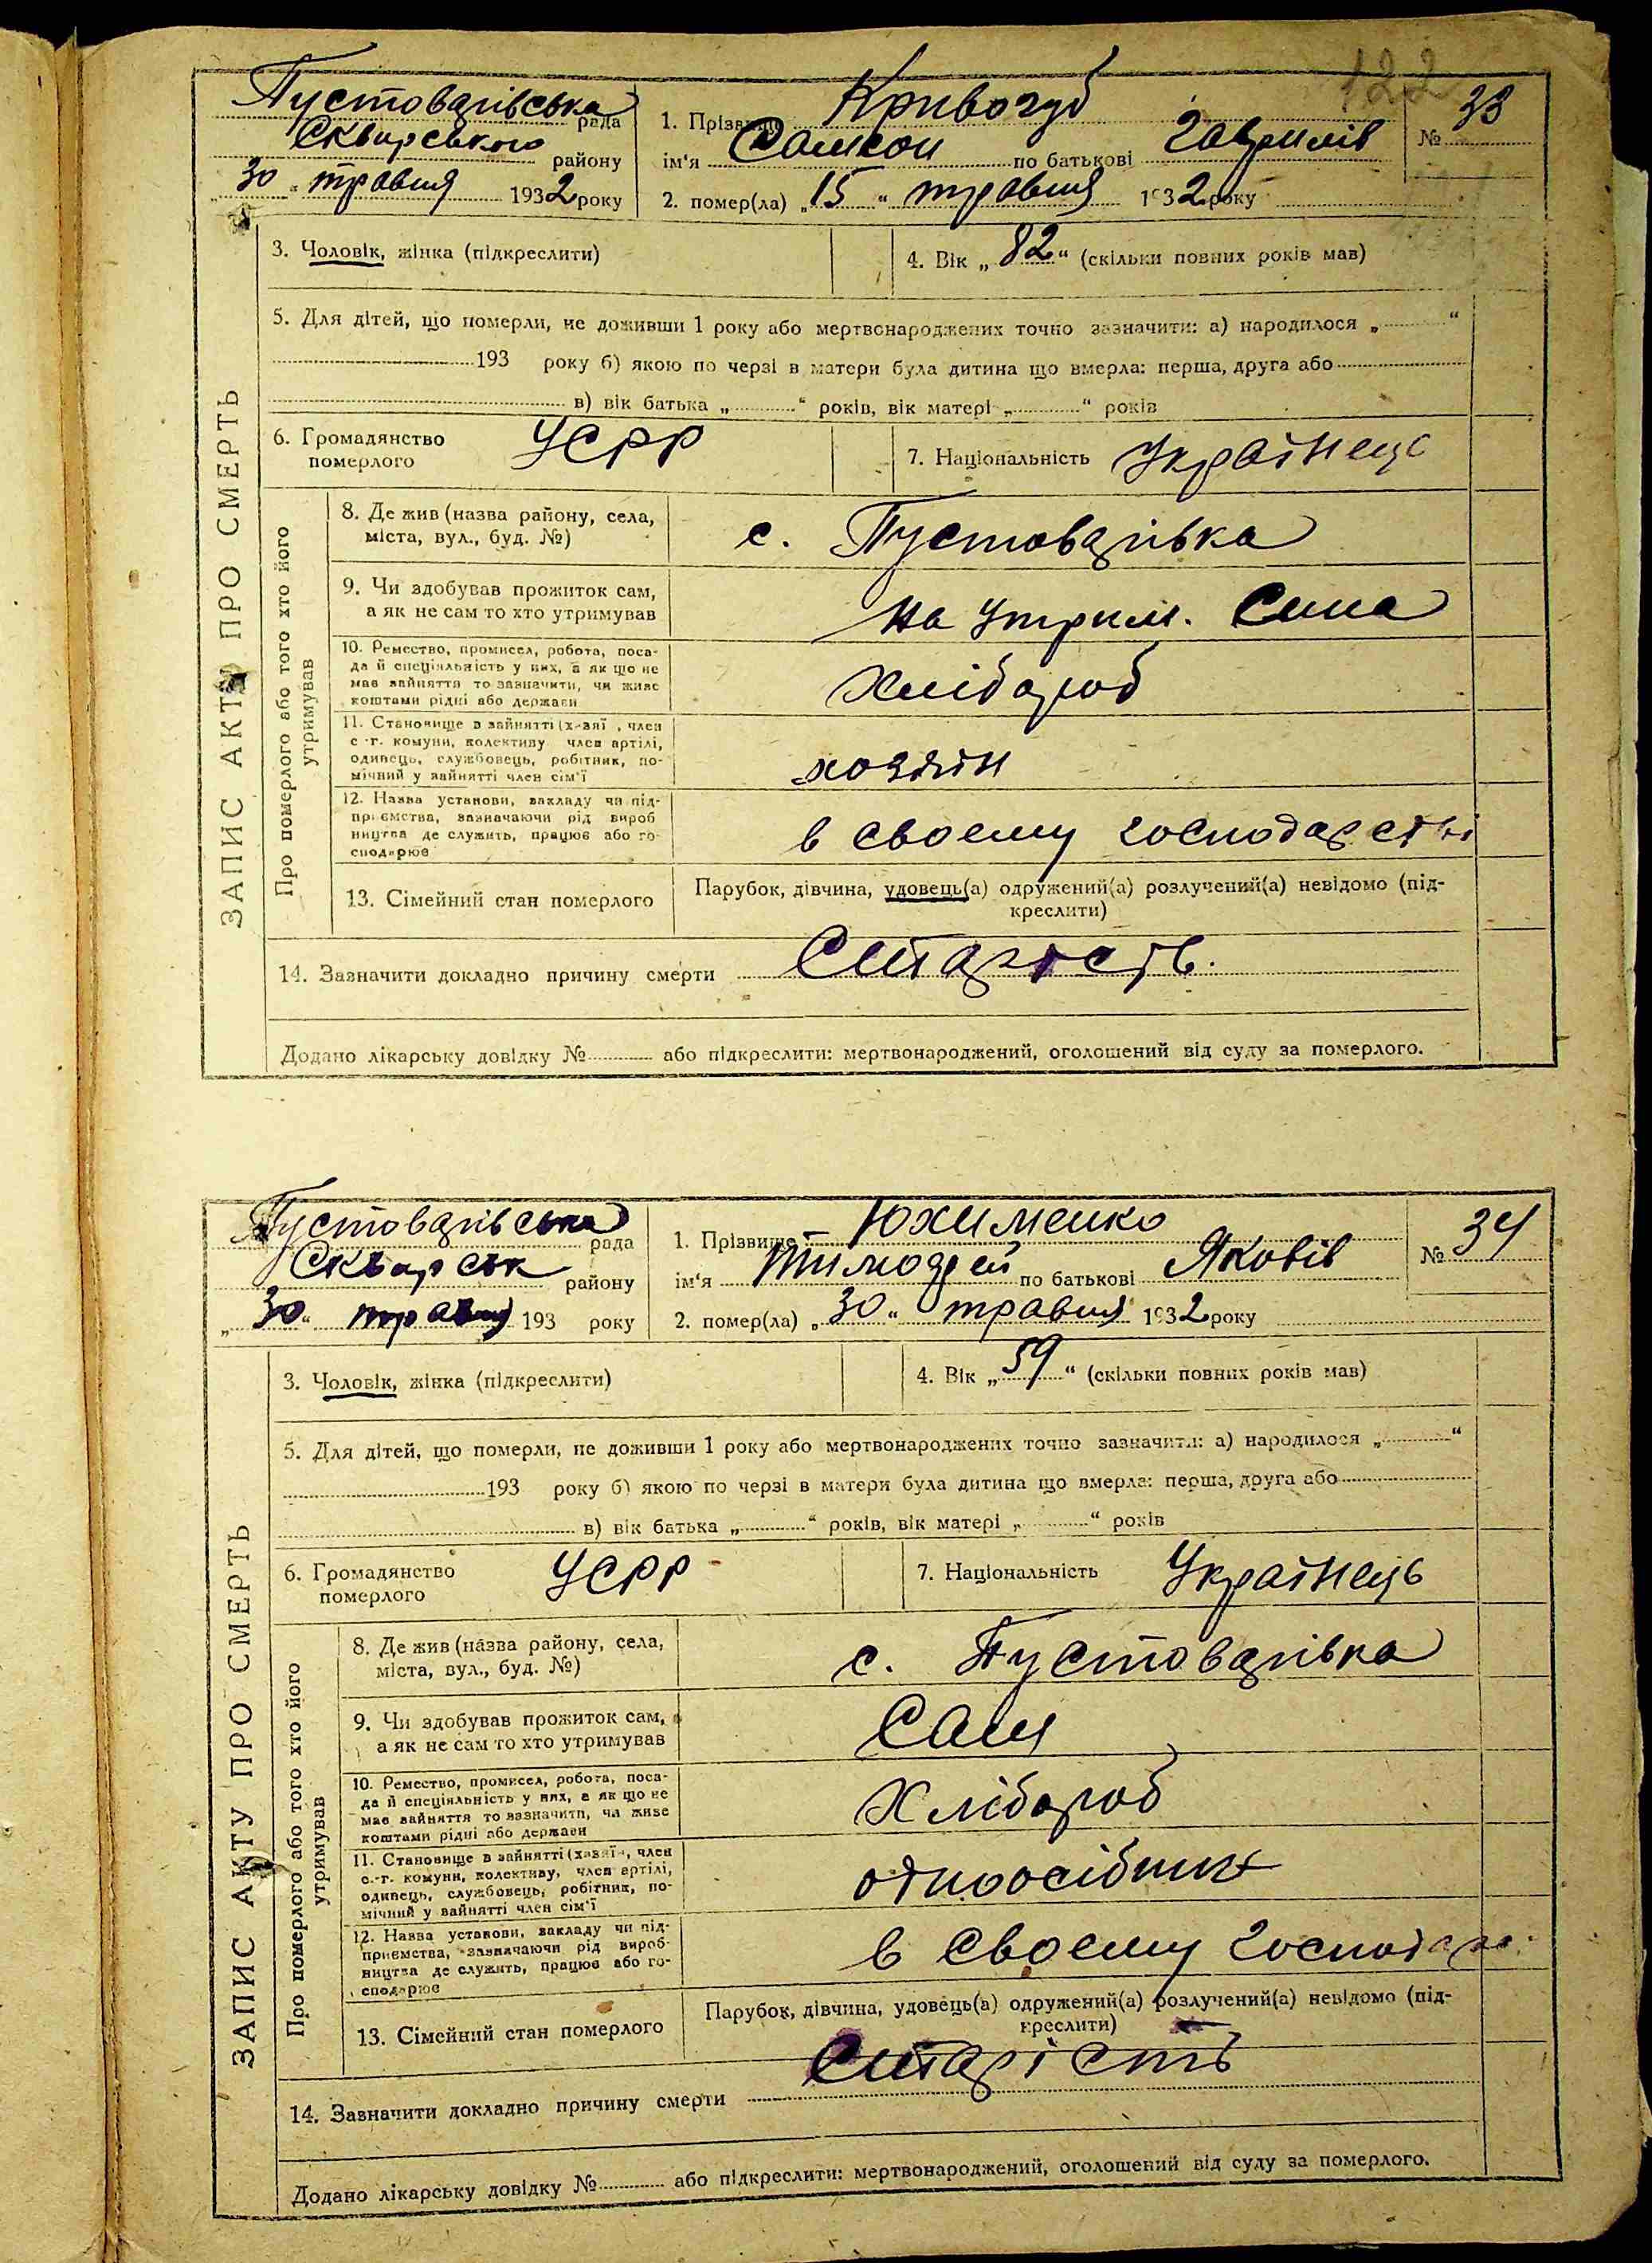 122
Пустоварівська рада
Сквирського району
„30“ травня 1932 року
1. Прізвище Кривочуб
ім'я Самсон по батькові Гаврилів
2. помер(ла) „15“ травня 1932 року
№ 33
ЗАПИС АКТУ ПРО СМЕРТЬ
3. Чоловік, жінка (підкреслити)
4. Вік „82“ (скільки повних років мав)
5. Для дітей, що померли, не доживши 1 року або мертвонароджених точно зазначити: а) народилося „ “
193 року б) якою по черзі в матери була дитина що вмерла: перша, друга або
в) вік батька „ “ років, вік матері „ “ років
6. Громадянство
померлого
УСРР
7. Національність Українець
Про померлого або того хто його
утримував
8. Де жив (назва району, села,
міста, вул., буд. №)
с. Пустоварівка
9. Чи здобував прожиток сам,
а як не сам то хто утримував
на утрим. Сина
10. Ремество, промисел, робота, поса-
да й спеціяльність у них, а як що не
має зайняття то зазначити, чи живе
коштами рідні або держави
Хлібороб
11. Становище в зайнятті (х-зяї , член
с -г. комуни, колективу член артілі,
одинець, службовець, робітник, по-
мічний у зайнятті член сім'ї
хозяїн
12. Назва установи, закладу чи під-
приємства, зазначаючи рід вироб
ництва де служить, працює або го-
сподарює
в своєму господарстві
13. Сімейний стан померлого
Парубок, дівчина, удовець(а) одружений(а) розлучений(а) невідомо (під-
креслити)
14. Зазначити докладно причину смерти Старість.
Додано лікарську довідку № або підкреслити: мертвонароджений, оголошений від суду за померлого.
Пустоварівська рада
Сквирськ району
„30“ травня 193 року
1. Прізвище Юхименко
ім'я Тимофей по батькові Яковів
2. помер(ла) „30“ травня 1932 року
№ 34
ЗАПИС АКТУ ПРО СМЕРТЬ
3. Чоловік, жінка (підкреслити)
4. Вік „59“ (скільки повних років мав)
5. Для дітей, що померли, не доживши 1 року або мертвонароджених точно зазначити: а) народилося „ “
193 року б) якою по черзі в матери була дитина що вмерла: перша, друга або
в) вік батька „ “ років, вік матері „ “ років
6. Громадянство
померлого
УСРР
7. Національність Українець
Про померлого або того хто його
утримував
8. Де жив (назва району, села,
міста, вул., буд. №)
с. Пустоварівка
9. Чи здобував прожиток сам,
а як не сам то хто утримував
Сам
10. Ремество, промисел, робота, поса-
да й спеціяльність у них, а як що не
має зайняття то зазначити, чи живе
коштами рідні або держави
Хлібороб
11. Становище в зайнятті (хазяї , член
с.-г. комуни, колективу, член артілі,
одинець, службовець, робітник, по-
мічний у зайнятті член сім'ї
одноосібник
12. Назва установи, закладу чи під-
приємства, зазначаючи рід вироб-
ництва де служить, працює або го-
сподарює
в своєму господар.
13. Сімейний стан померлого
Парубок, дівчина, удовець(а) одружений(а) розлучений(а) невідомо (під-
креслити)
14. Зазначити докладно причину смерти Старість
Додано лікарську довідку № або підкреслити: мертвонароджений, оголошений від суду за померлого.